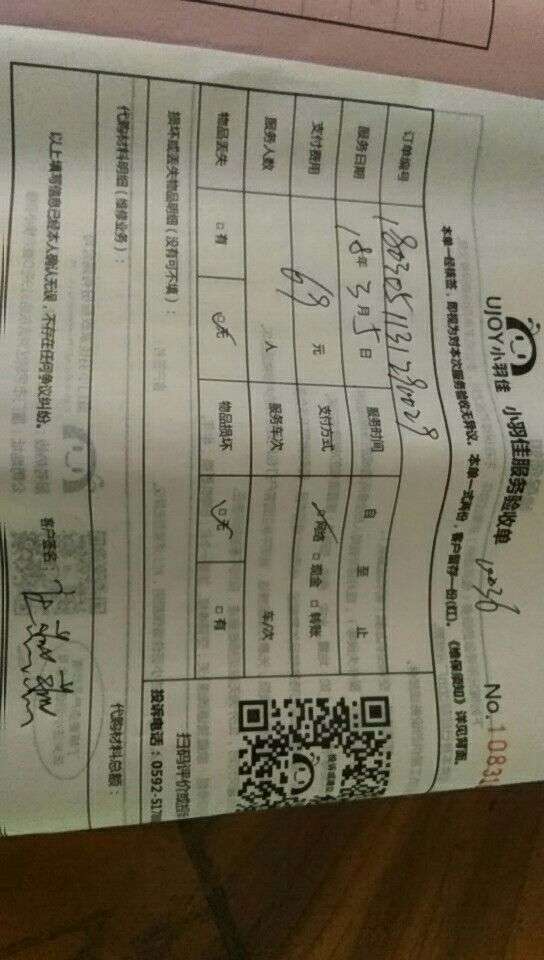 UJOY小羽佳 小羽佳服务验收单 No.1083
本单一经核签，即视为对本次服务验收无异议。本单一式两份，客户留存一份(红)。《维保须知》详见背面。
订单编号 1803051131280029
服务日期 18年3月5日 服务时间 自 至 止
支付费用 69元 支付方式 ☑网络 □现金 □转账
服务人数 人 服务车次 车/次
物品丢失 □有 ☑无 物品损坏 ☑无 □有
损坏或丢失物品明细（没有可不填）：
扫码评价或投
投诉电话：0592-5178
代购材料明细（维修业务）： 代购材料总额：
以上填写信息已经本人确认无误，不存在任何争议纠纷。 客户签名：